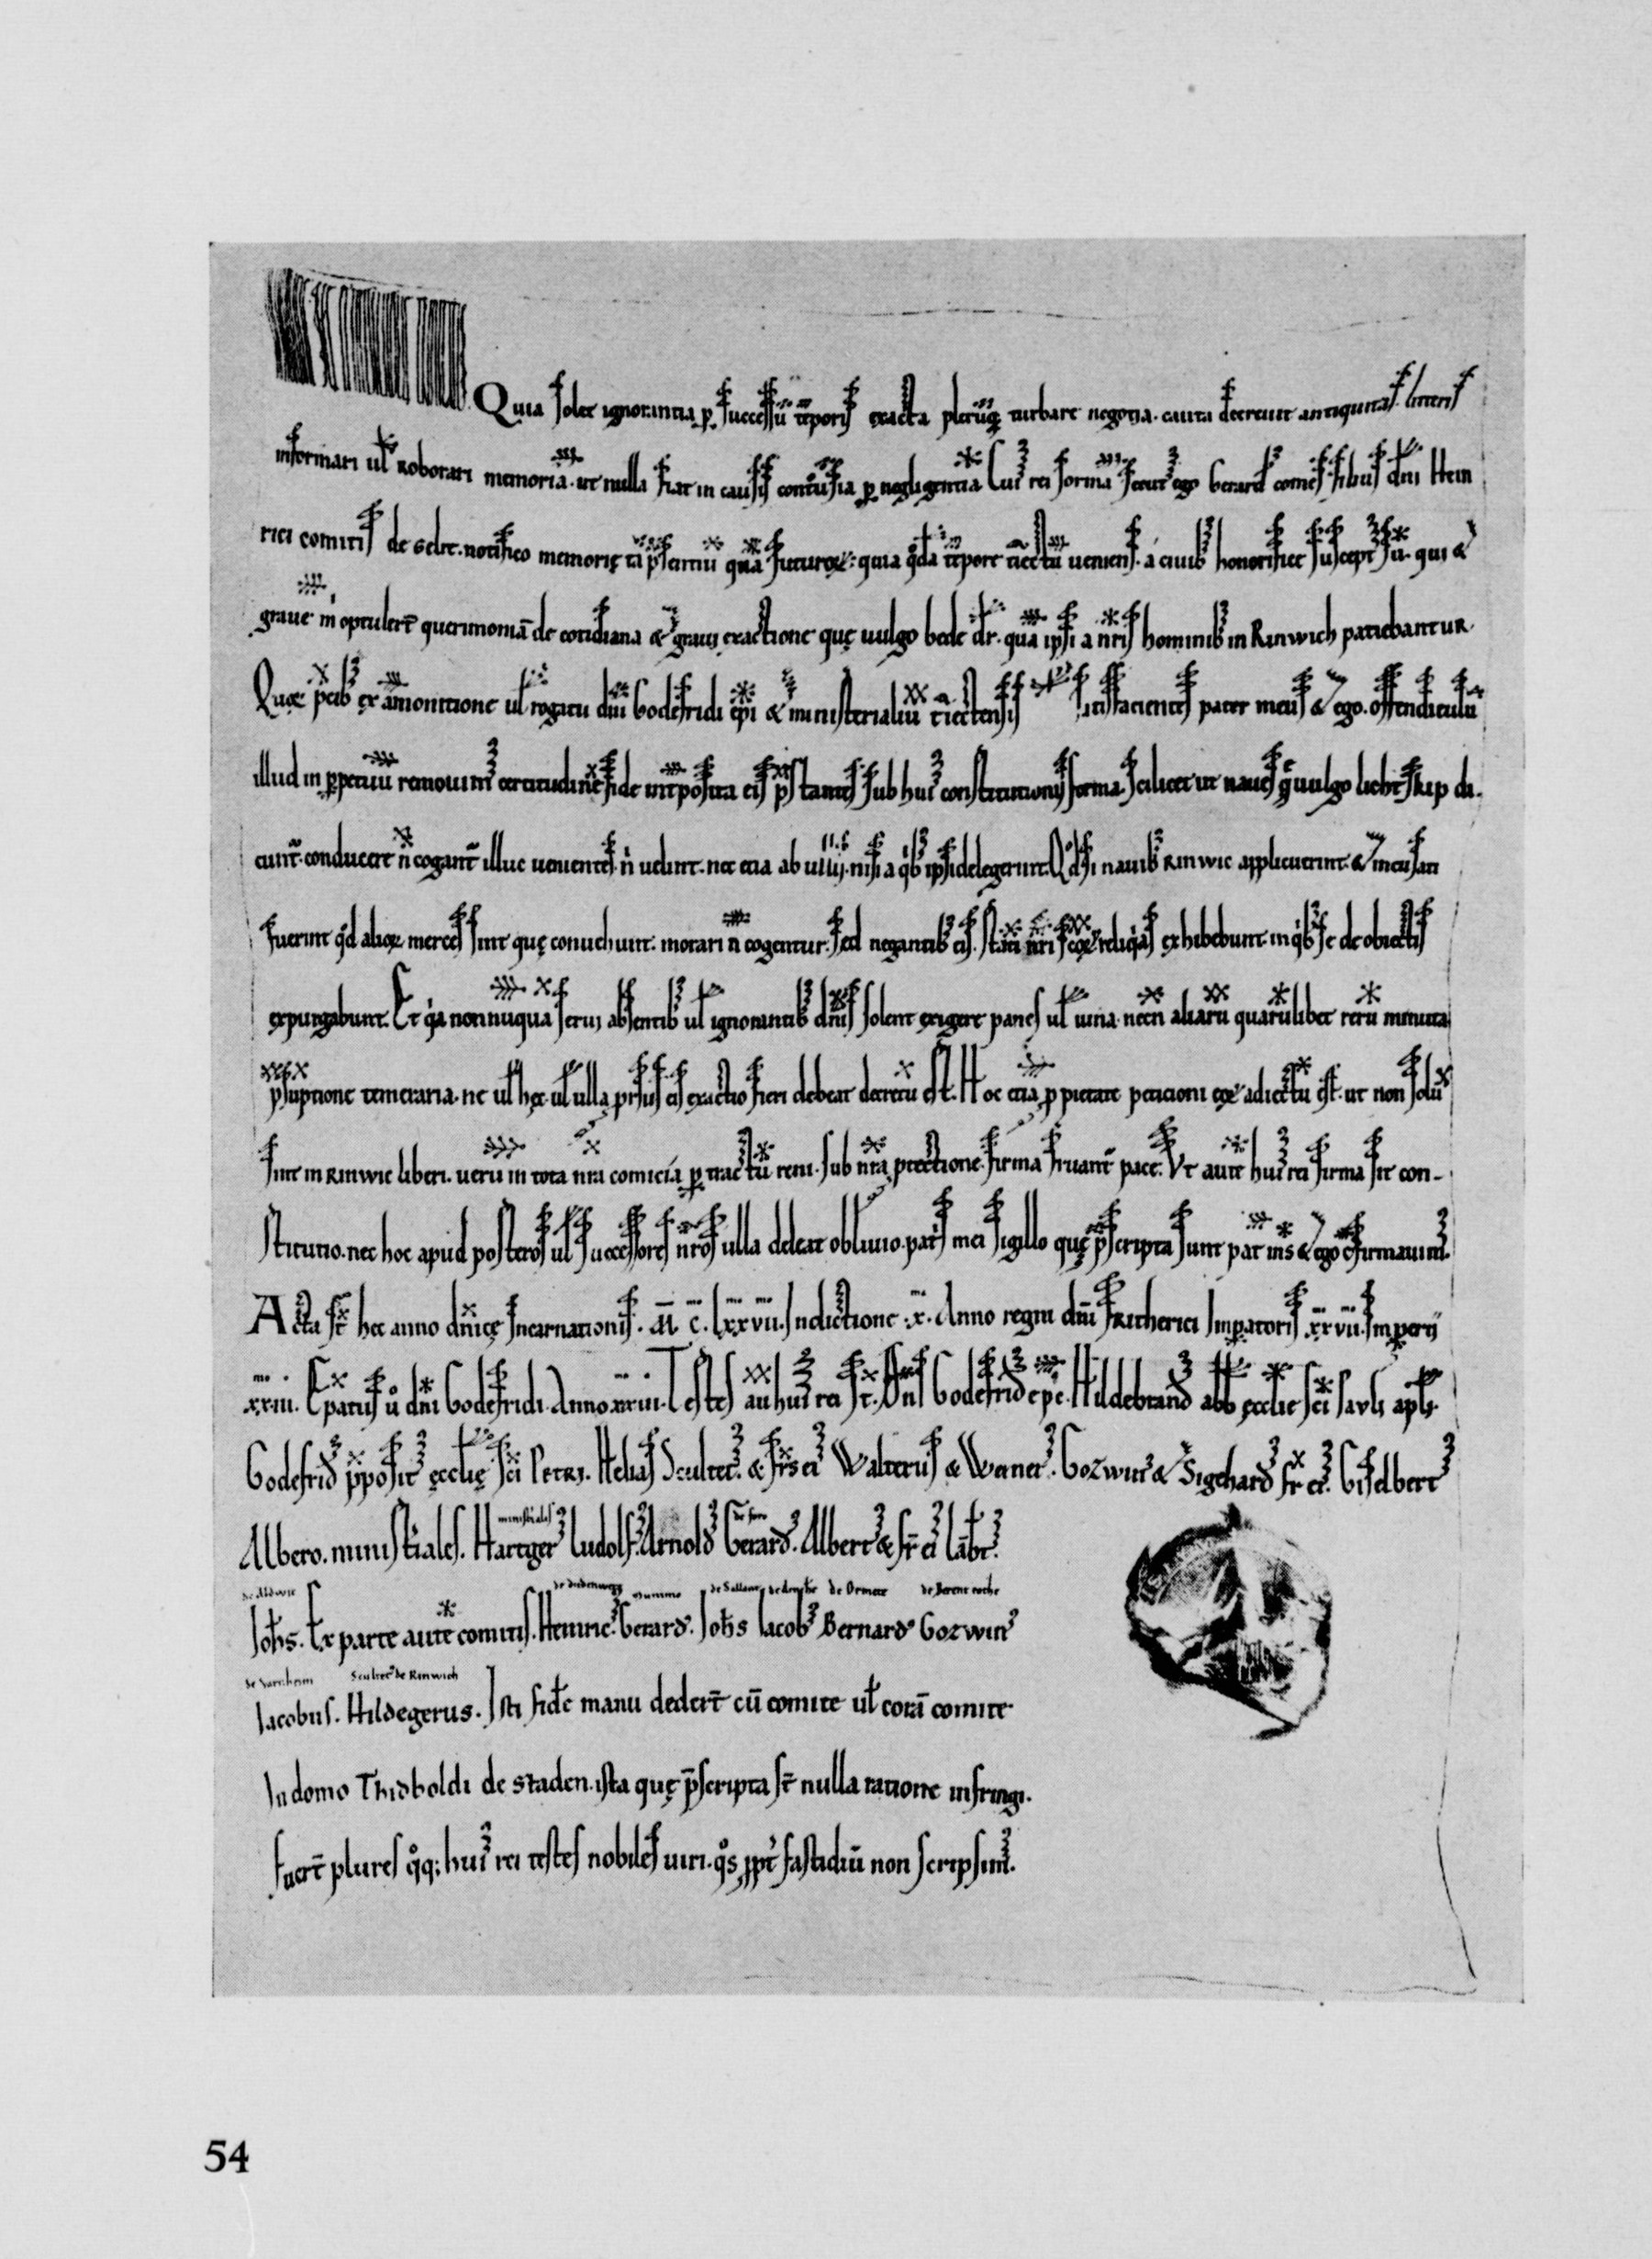 Quia solet ignorantia ꝑ successū tēporis exacta plerūq; turbare negotia. cauta decreuit antiquitas. litteris
informari uł roborari memoria. ut nulla fiat in causis confusia ꝑ negligentiā Cui᾽ rei forma secut᾽ ego Gerard᾽ comes. filius dn̄i Hein
rici comitis de Gelre. notifico memorię tā p̄sentiū quā futuroꝝ. quia qᵒdā tēpore t̄iectū ueniens. á ciuib᾽ honorifice suscept᾽ sū. qui &
grauē m̍ optulert̄ querimoniā de cotidiana & graui exactione quę uulgo bede dr̄. quā ipsi a nr̄is hominib᾽ in Rinwich patiebantur.
Quoꝝ p̄cib᾽ ex āmonitione uł rogatu dn̄i Godefridi ep̄i & ministerialiū t̄iectensiū satisfacientes pater meus & ego. offendiculū
illud in ꝑpetuū remouim᾽ certitudinē fide int̄posita eis p̄stantes sub hui᾽ constitutionis forma. scilicet ut naues q̄ uulgo lichtskip di.
cunt᾽. conducere n̄ cogant᾽ illuc uenientes. n̍ uelint. nec etiā ab ullis. nisi a qͥb᾽ ipsi delegerint. Qd̄ si nauib᾽ Rinwic applicuerint. & incusati
fuerint qᵒd alioꝝ merces sint quę conuehunt. morari n̄ cogentur. sed negantib᾽ eis. statī nr̄i scōꝝ reliqͥas exhibebunt. in qͥb᾽ se de obiectis
expurgabunt. Et qͥa nonnūquā serui absentib᾽ uł ignorantib᾽ dn̄is solent exigere panes uł uina. necn̄ aliarū quarūlibet rerū minuta
p̄sūptione temeraria. ne uł hęc uł ulla prͥus eis exactio fieri debeat decretū est. Hoc etiā ꝓ pietate peticioni eoꝝ adiectū est. ut non solū
sint in Rinwic liberi. uerū in tota nr̄a comicia ꝑ tractū reni. sub nr̄a ꝓtectione firma fruant᾽ pace. Vt autē hui᾽ rei firma sit con-
stitutio. nec hoc apud posteros uł successores nr̄os ulla deleat obliuio. patͥs mei sigillo quę p̄scripta sunt pat̄ m̄s & ego ꝯfirmauim᾽.
Acta st̄ hec anno dn̄icę Incarnationis. M. C. Lxxvii. Indictione .x. Anno regni dn̄i Fritherici Imꝑatoris xxvii. Imꝑii
xxiii. Ep̄atus ů dn̄i Godefridi. Anno xxiii. Testes au᾽ hui᾽ rei st̄. Dn̄s Godefrid᾽ ep̄c. Hildebrand᾽ abb᾽ ęcclie sc̄i Pavli apłi.
Godefrid᾽ p̄posit᾽ ęcclię sc̄i Petri. Helias Scultet᾽. & fr̄s ei᾽ Walterus & Werner᾽. Gozwin᾽ & Sigehard᾽ fr̄ ei᾽. Giselbert᾽
ministiales de foro
Albero. ministiales. Hartger᾽ Ludolf᾽. Arnold᾽ Gerard᾽. Albert᾽ & fr̄ ei᾽ Lābt᾽.
de Aldwic nummo de Ormete de Berent roche
Joħs. Ex parte autē comitis. Heinric᾽. Gerard᾽. Joħs Jacob᾽ Bernard᾽ Gozwin᾽
Scultet᾽ de Rinwich
Jacobus. Hildegerus. Isti fidē manu dedert̄ cū comite uł corā comite
In domo Thidboldi de Staden. ista quę p̄scripta st̄ nulla ratione infringi.
Fuert̄ plures qᵒq; hui᾽ rei testes nobiles uiri. qᵒs ꝓpt̄ fastidiū non scripsim᾽.
54